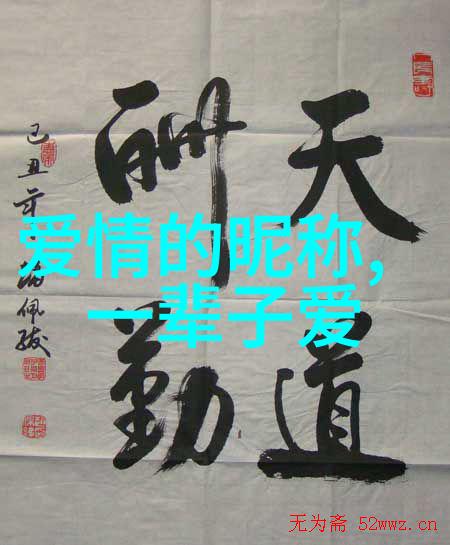 天道
酬勤
己丑年 佩
爱情的昵称,
一辈子爱
无为斋 52wwz.cn